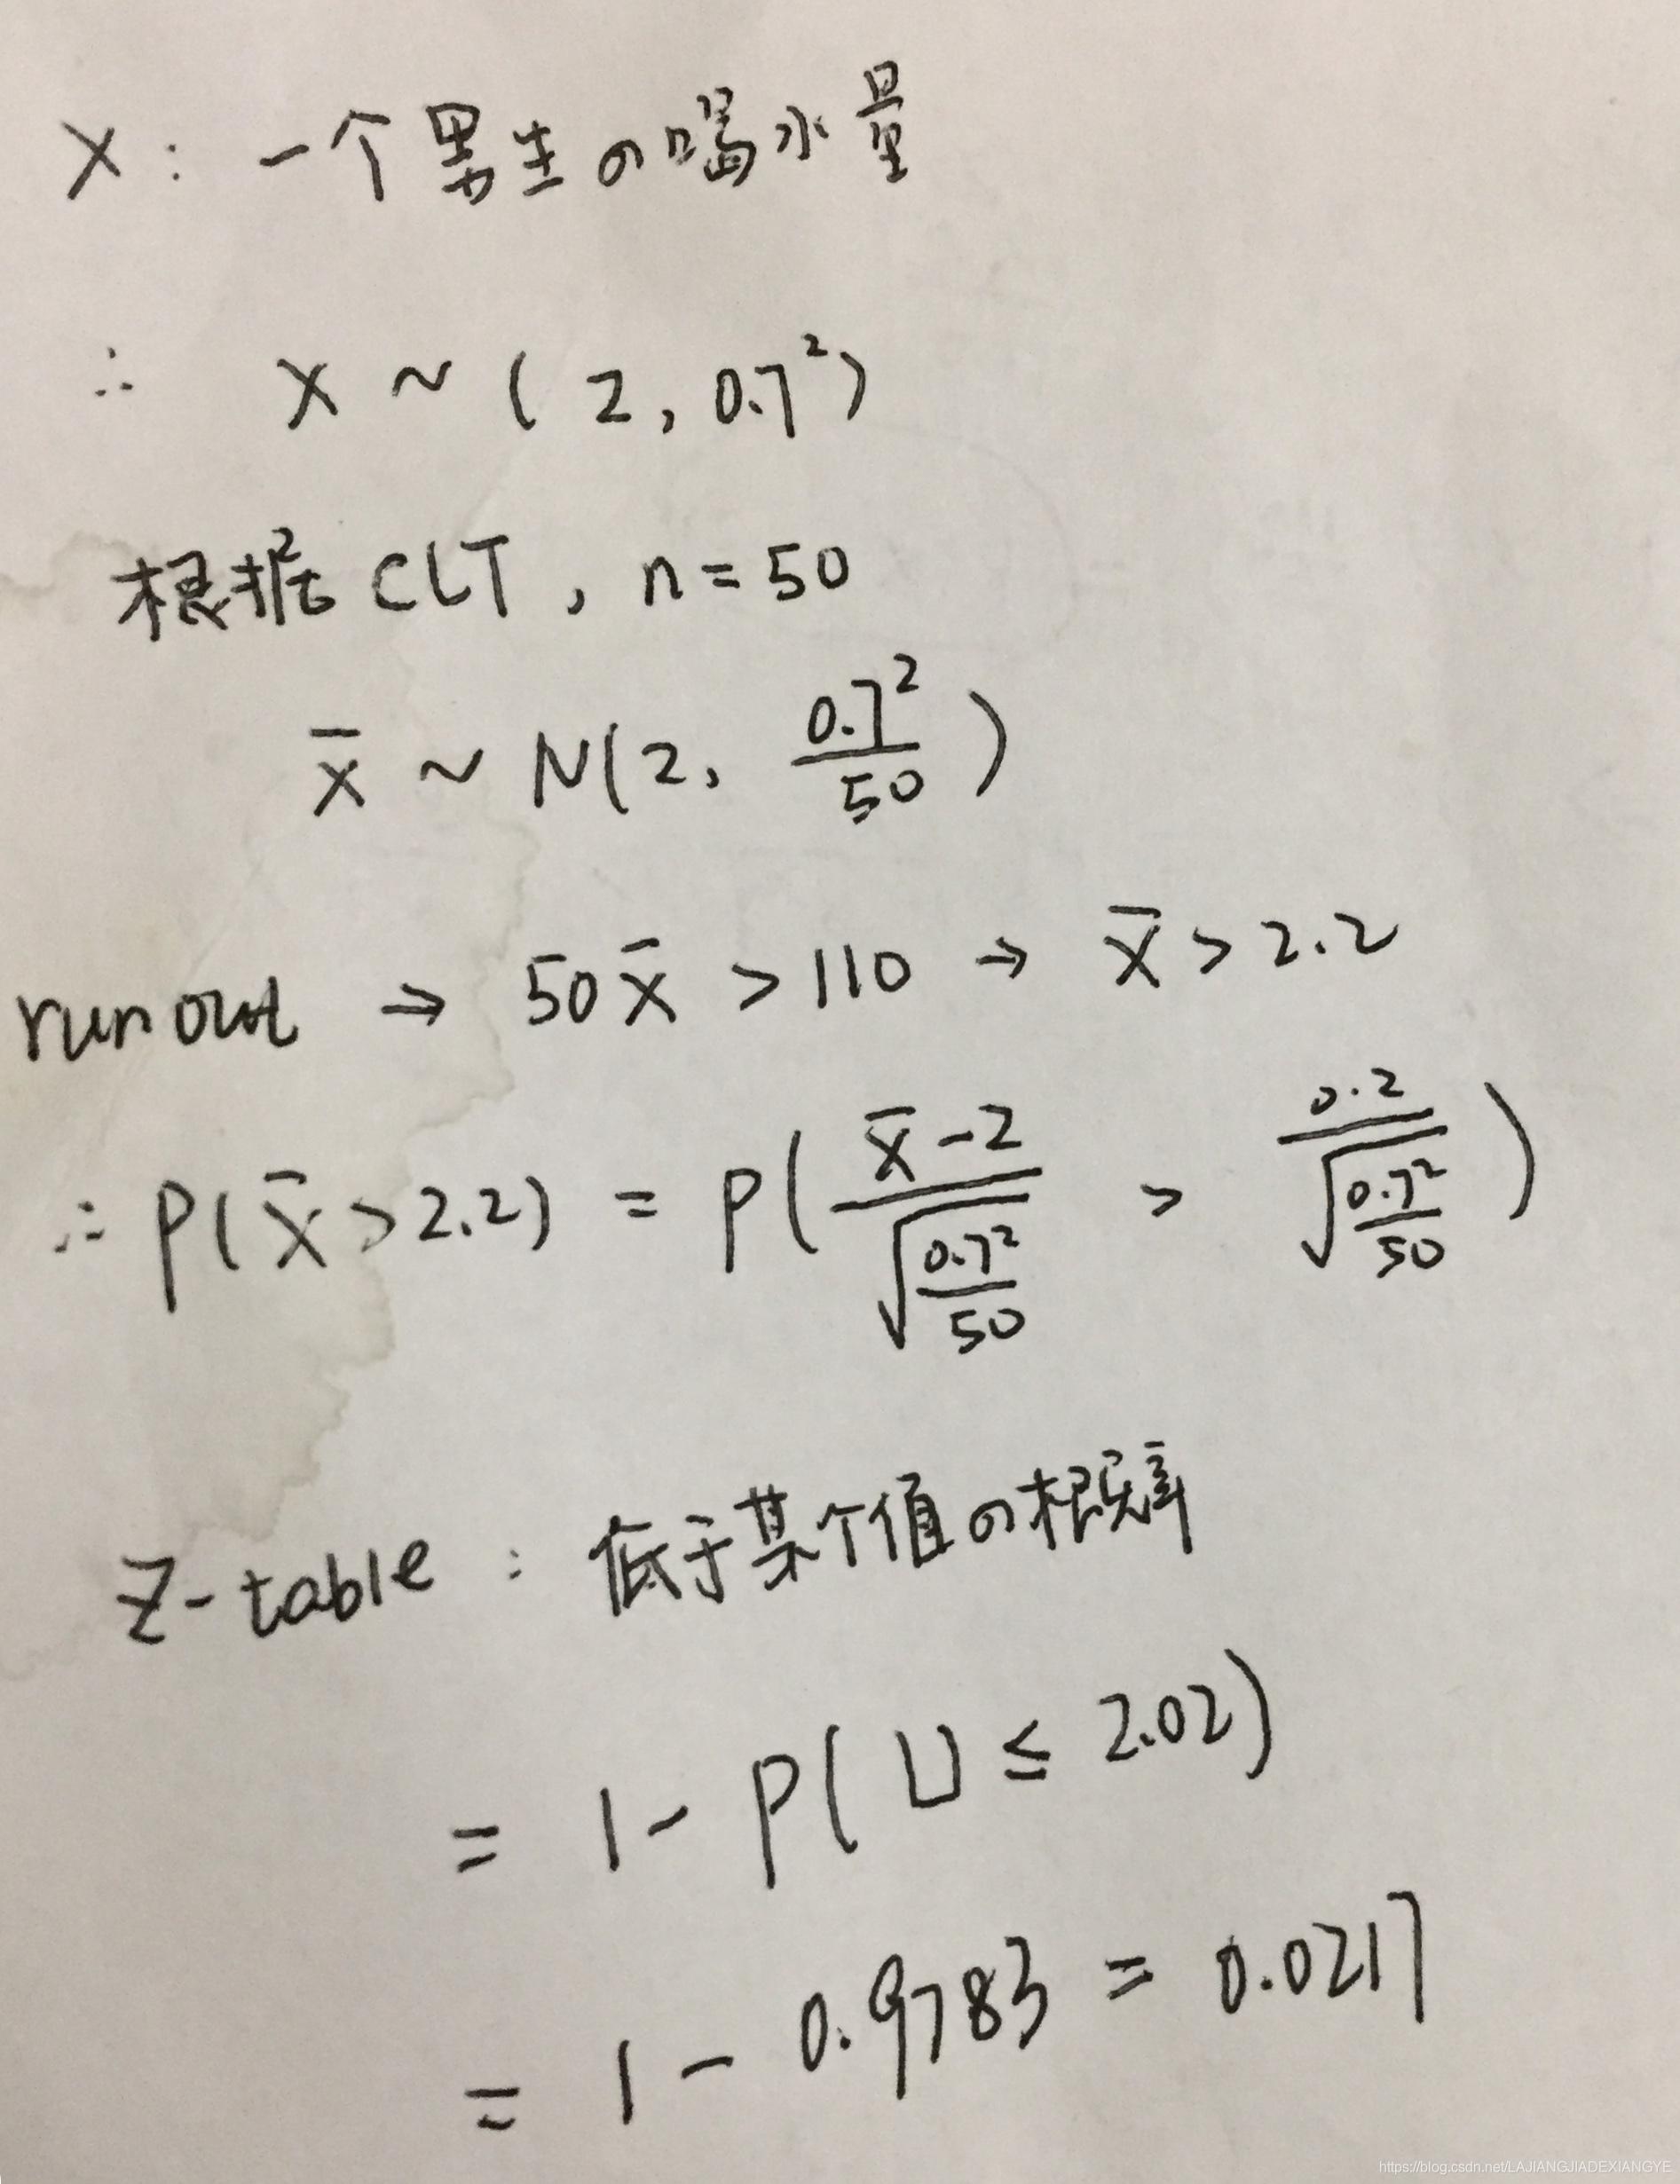 X：一个男生の喝水量
∴ X ~ ( 2 , 0.7² )
根据CLT , n = 50
x̄ ~ N(2, 0.7²/50 )
run out → 50x̄ > 110 → x̄ > 2.2
∴ P( x̄ > 2.2) = P( (x̄-2)/√(0.7²/50) > 0.2/√(0.7²/50) )
Z-table : 低于某个值の概率
= 1- P( U ≤ 2.02)
= 1 - 0.9783 = 0.0217
https://blog.csdn.net/LAJIANGJIADEXIANGYE